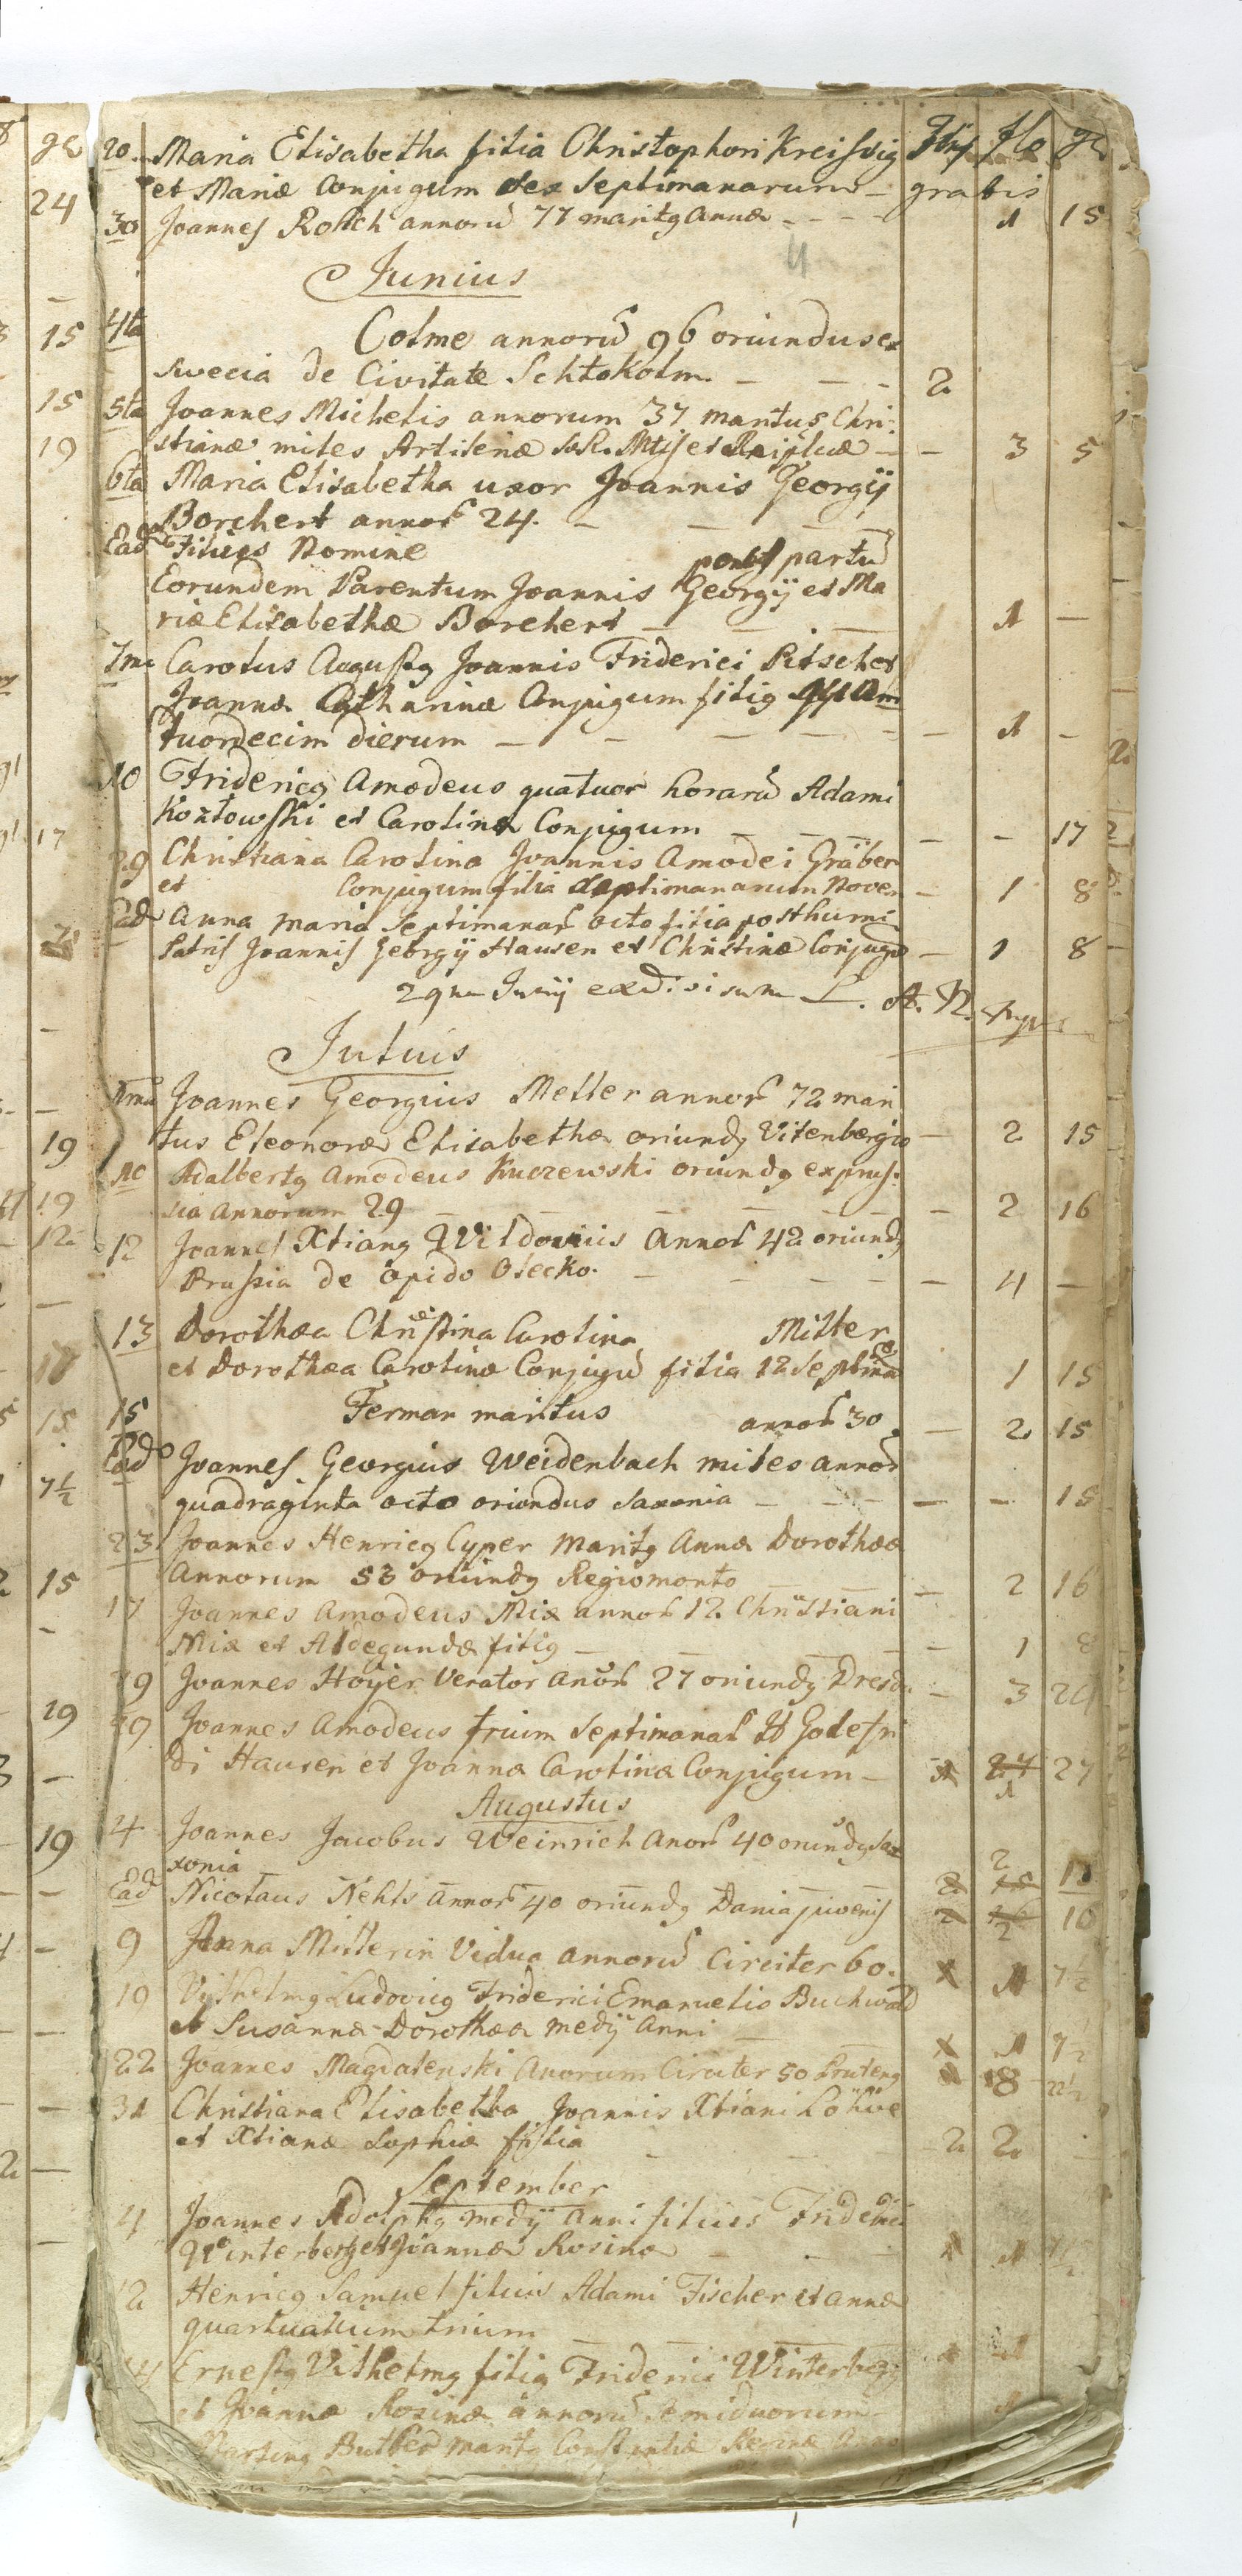 20. Maria Elisabetha filia Christophori Kreissig
et Mariæ Conjugum sex Septimanarum gratis
30 Joannes Rolich annorū 77 marit9 Annæ 1 15
4
Junius
4ta Colme annorū 96 oriundus ex
Swecia de Civitate Schtokolm. 2
5ta Joannes Michelis annorum 37. maritus Chri-
stianæ miles Artileriæ 3 5
6ta Maria Elisabetha uxor Joannis Georgÿ
Borchert annor 24.
Ead Filius Nomine post partū
Eorundem Parentum Joannis Georgÿ et Ma
riæ Elisabethæ Borchert 1 —
7ma Carolus August9 Joannis Friderici Pitsch et
Joannæ Catharinæ Conjugum fili9
tuordecim dierum — 1 —
10 Frideric9 Amadeus quatuor horarū Adami
Kozłowski et Carolinæ Conjugum — — 17
29 Christiana Carolina Joannis Amodei Gräber
et Conjugum filia Septimanarum Novem — 1 8
Ead Anna Maria Septimanar octo filia posthumi
Patris Joannis Georgÿ Hausen et Christinæ Conjugū — 1 8
29na Junÿ exdivisum L. A. N.
Julius
Joannes Georgius Metler annor 72 mari
tus Eleonoræ Elisabethæ oriund9 Vitenbergio — 2 15
10 Adalbert9 Amodeus Kuczewski oriund9 ex prus-
sia Annorum 29 — 2 16
12 Joannes Xtian9 Wildovius Annor 42 oriund9
Prussia de opido Olecko. — 4 —
13 Dorothæa Christina Carolina Miller
et Dorothæa Carolinæ Conjugū filia 12 Septima 1 15
15 Ferman maritus annor 30 — 2 15
Ead Joannes Georgius Weidenbach miles annor
quadraginta octo oriundus Saxonia — — 15
23 Joannes Henric9 Cyper Marit9 Annæ Dorothææ
Annorum 53 oriund9 Regiomonto — 2 16
17 Joannes Amodeus Mix annor 12. Christiani
Mix et Aldegundæ fili9 — 1 8
19 Joannes Hoyer Venator Anor 27 oriund9 Dresda — 3 24
Joannes Amodeus trium Septimanar Godefri
di Hausen et Joannæ Carolinæ Conjugum — 1 27
Augustus
4 Joannes Jacobus Weinrich Anor 40 oriund9 Sa
xonia 2
Ead Nicolaus Nehls annor 40 oriund9 Dania juvenis 2 10
9 Anna Millerin Vidua annorū Circiter 60. 7½
19 Vilhelm9 Ludovic9 Friderici Emanuelis Buchwald
et Susannæ Dorothææ medÿ Anni 1 7½
22 Joannes Magdalenski Anorum Circiter 50 Pruten9 8 22½
31 Christiana Elisabetha Joannis Xtiani Löhwe
et Xtianæ Sophiæ filia 2 2
September
4 Joannes Adolph9 medÿ anni filius Friderici
Winterberg et Joannæ Rosinæ
12 Henric9 Samuel filius Adami Fischer et Annæ
quartualium trium
Ernest9 Vilhelm9 fili9 Friderici Winterberg
et Joannæ Rosinæ annorū Semiduorum
Martin9 Butler marit9 Constantiæ Reginæ